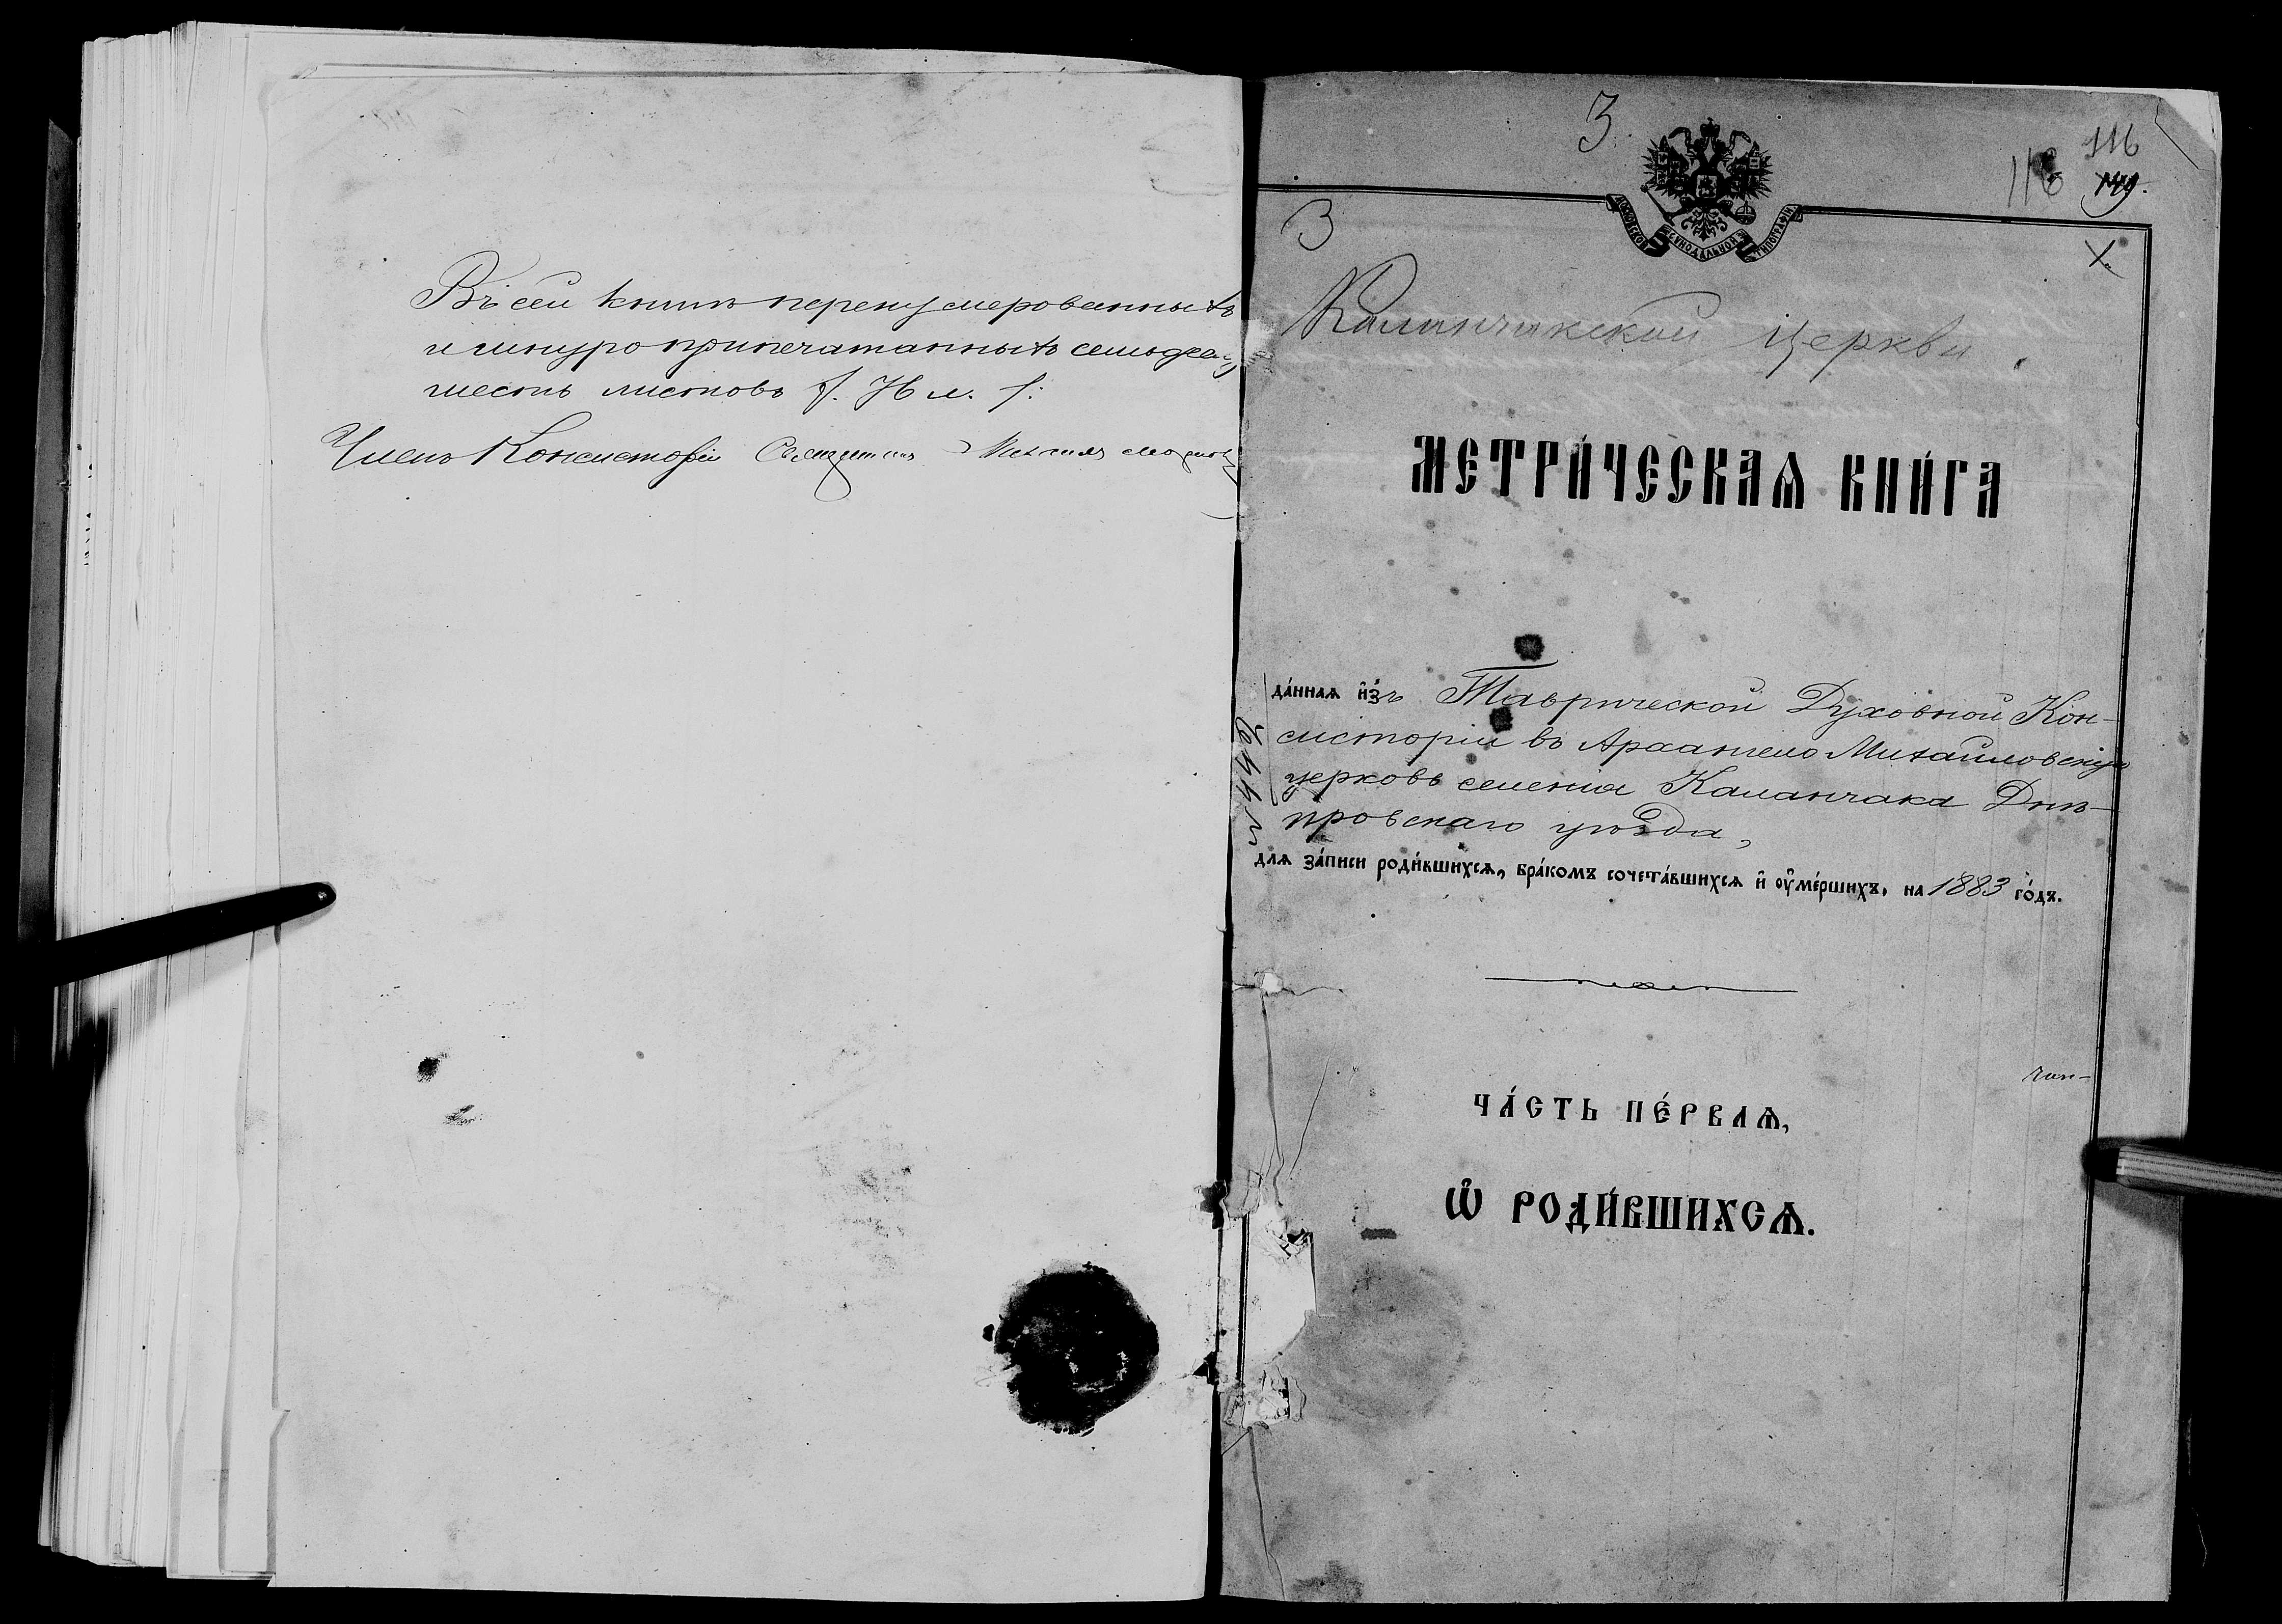 Въ сей книгѣ перенумерованныхъ
и шнуро припечатанныхъ семьдесятъ
шесть листовъ
Членъ Консисторіи Священникъ
3
116
116
149.
МОСКОВСКОЙ СѴНОДАЛЬНОЙ ТИПОГРАФІИ
3
X
Каланчакской церкви
МЕТРИ́ЧЕСКАѦ КНИ́ГА
да́ннаѧ и҆з̾ъ Таврической Духовной Кон-
систоріи въ Архангело Михайловскую
церковь селенія Каланчака Днѣ-
провскаго уѣзда,
длѧ за́писи роди́вшихсѧ, бра́комъ сочета́вшихсѧ и҆ ᲂу҆ме́ршихъ, на 1883 го́дъ.
ЧА́СТЬ ПЕ́РВАѦ,
Ѽ РОДИ́ВШИХСѦ.